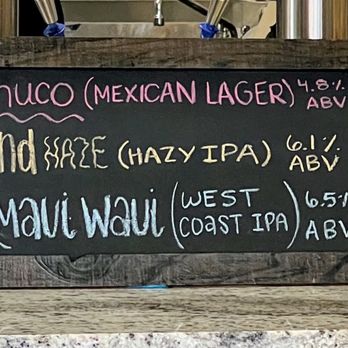 nuco (MEXICAN LAGER) 4.8% ABV
nd HAZE (HAZY IPA) 6.1% ABV
Maui Waui (WEST COAST IPA) 6.5% ABV